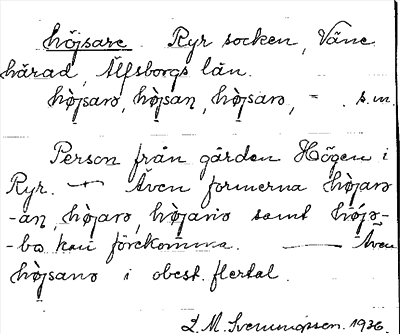 höjsare. Ryr socken, Väne
härad, Älfsborgs län.
hòjsarə, hòjsan, hòjsarə, – . s.m.
Person från gården Högen i
Ryr. — Även formerna hòjarə
-an, hòjarə, hòjarnə samt hòjə-
-bo kan förekomma. — Även
hòjsanə i obest. flertal.
L.M. Svenungsson. 1936.